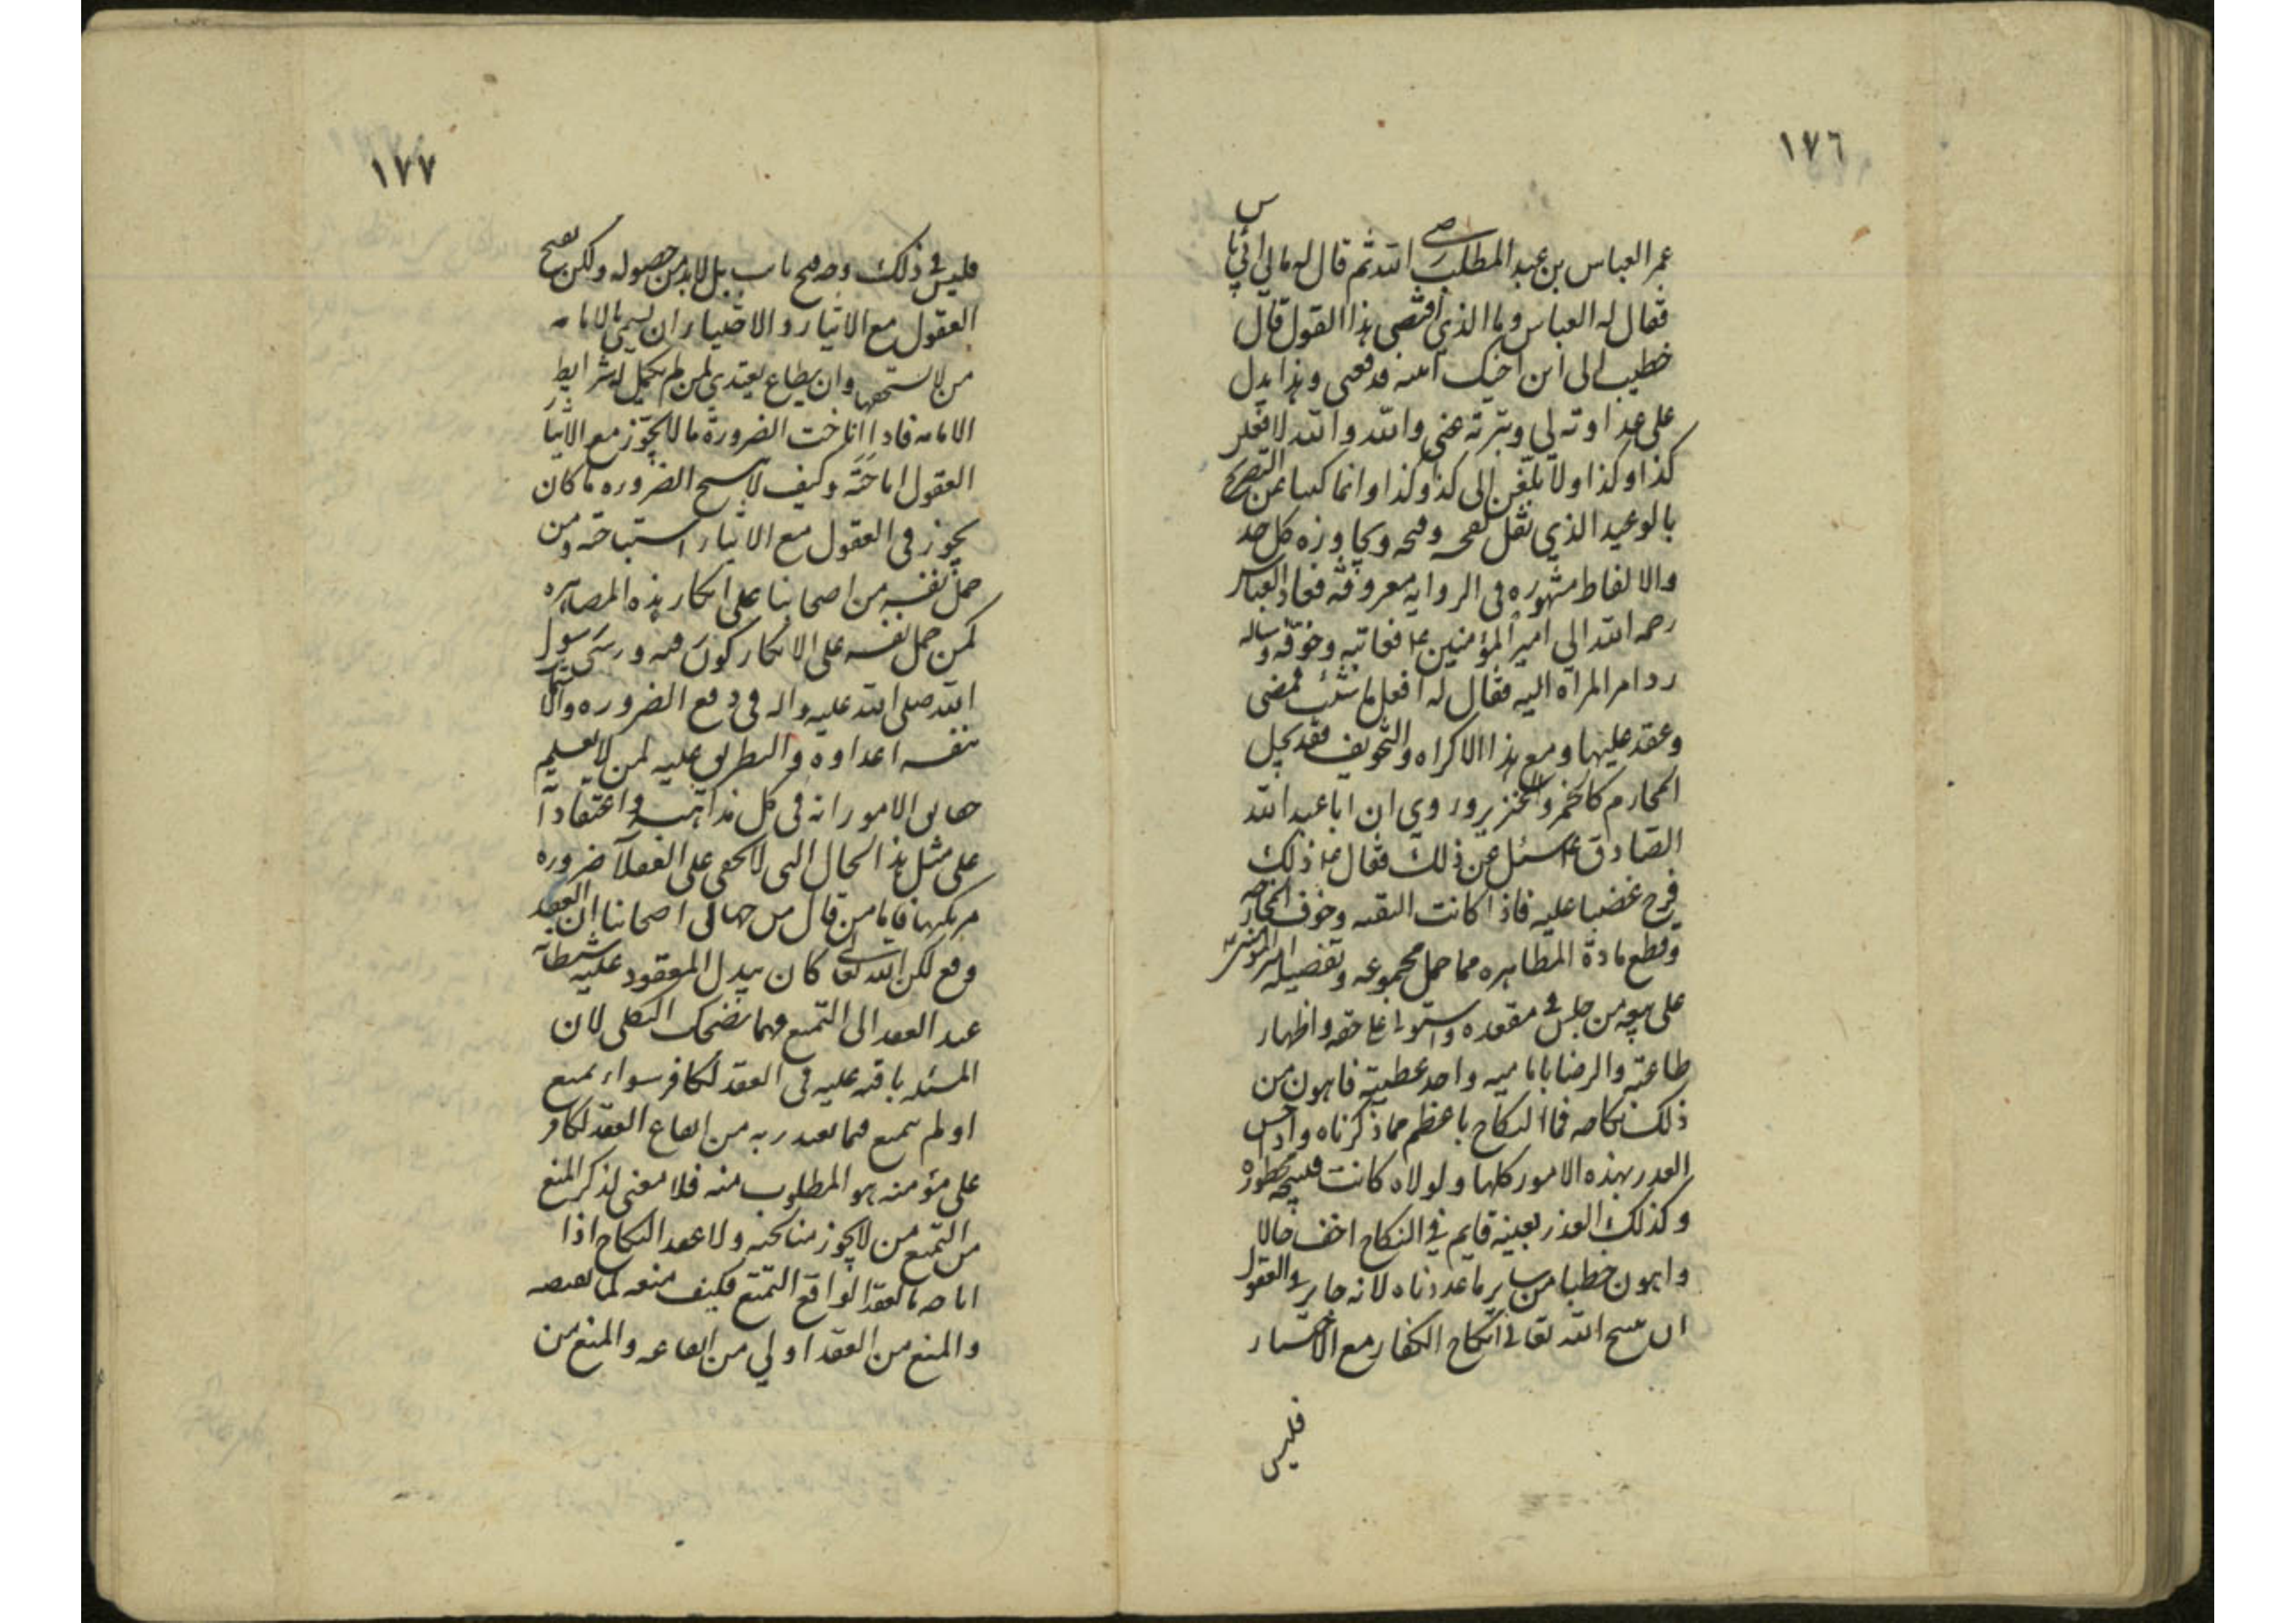 ١٧٦
عمر العباس بن عبد المطلب رضي الله ثم قال له مالي ابي باس
فقال له العباس وما الذي اقتضى هذا القول قال
خطبت الى ابن اخيك ابنته فدفعني وهذا يدل
على عداوته لي وتبرته عني والله والله لافعلن
كذا وكذا ولا بلغن الى كذا وكذا وانما كنيا عن التصريح
بالوعيد الذي نقل لقبحه وفحشه وتجاوزه كل حد
والالفاظ مشهوره في الروايه معروفة فعاد العباس
رحمه الله الى امير المؤمنين ع فعاتبه وخوفه وساله
رد امر المرأه اليه فقال له افعل ما شئت فمضى
وعقد عليها ومع هذا الاكراه والتخويف فقد يحل
المحارم كالخمر والخنزير وروى ان ابا عبد الله
الصادق ع سئل عن ذلك فقال ع ذلك
فرج غضبنا عليه فاذا كانت التقيه وخوف المخارجه
وقطع مادة المظاهره مما حمل مجموعه وتفصيله امير المؤمنين
على بيعه من جلس في مقعده واستولى على حقه واظهار
طاعته والرضا بامامته واخذ عطيته فاهون من
ذلك نكاحه فما النكاح باعظم مما ذكرناه واذا حسن
العذر بهذه الامور كلها ولولاه كانت قبيحة محظوره
وكذلك العذر بعينه قايم في النكاح اخف حالا
واهون خطبا من ساير ما عددناه لانه جايز في العقول
ان يبيح الله تعالى انكاح الكفار مع الاختيار
فليس
١٧٧
فليس في ذلك وجه قبح ثابت بل لابد من حصوله ولكن يقبح
العقول مع الايثار والاختيار ان يسمى بالامامه
من لا يستحقها وان يطاع يقتدي لمن لم يكمل له شرايط
الامامه فاذا اباحت الضرورة ما لا يجوز مع الايثار
العقول اباحته وكيف لا يبيح الضروره ما كان
يجوز في العقول مع الايثار استباحته ومن
حمل نفسه من اصحابنا على انكار هذه المصاهره
كمن حمل نفسه على الانكار كون رقيه ورسول
الله صلى الله عليه واله في دفع الضروره والا
نفسه اعداوه والتطريق عليه لمن لا يعلم
حقايق الامور انه في كل مذاهبه واعتقاداته
على مثل هذا الحال التي لا تخفى على العقلا ضروره
مرتكبها فاما من قال من جهال اصحابنا ان العقد
وقع لكن الله تعالى كان يبدل المعقود عليه شيطانه
عند العقد الى التمتع فمما يضحك الثكلى لان
المسئله باقيه عليه في العقد لكافر سواء تمتع
او لم يتمتع فما يعتذر به من ايقاع العقد لكافر
على مؤمنه هو المطلوب منه فلا معنى لذكر المنع
من التمتع من لا يجوز مناكحته ولا عقد النكاح اذا
اباحه بالعقد الواقع التمتع فكيف منعه لما يقتضيه
والمنع من العقد اولي من ايقاعه والمنع من